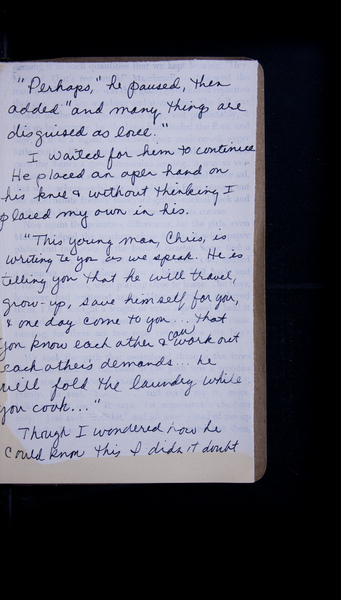 "Perhaps," he paused, then
added "and many things are
disguised as love."
I waited for him to continue
He placed an open hand on
his knee & without thinking I
placed my own in his.
"This young man, Chris, is
writing to you as we speak. He is
telling you that he will travel,
grow-up, save himself for you,
& one day come to you... that
you know each other & can work out
each other's demands... he
will fold the laundry while
you cook..."
Though I wondered how he
could know this I didn't doubt